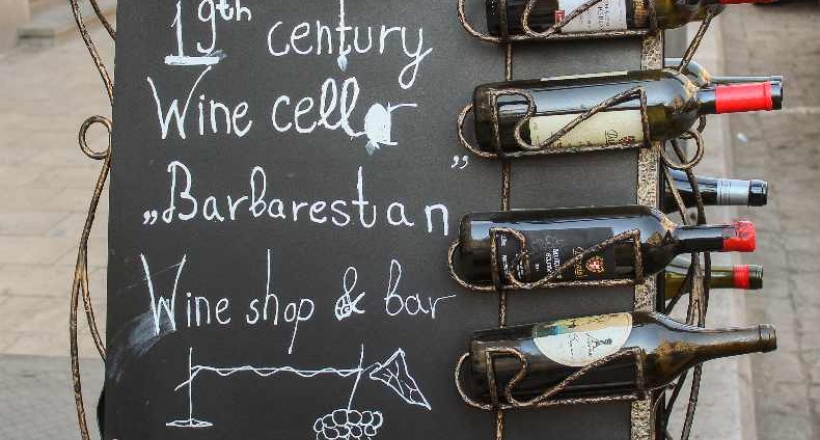 19th century
Wine cellar
„Barbarestan”
Wine shop & bar